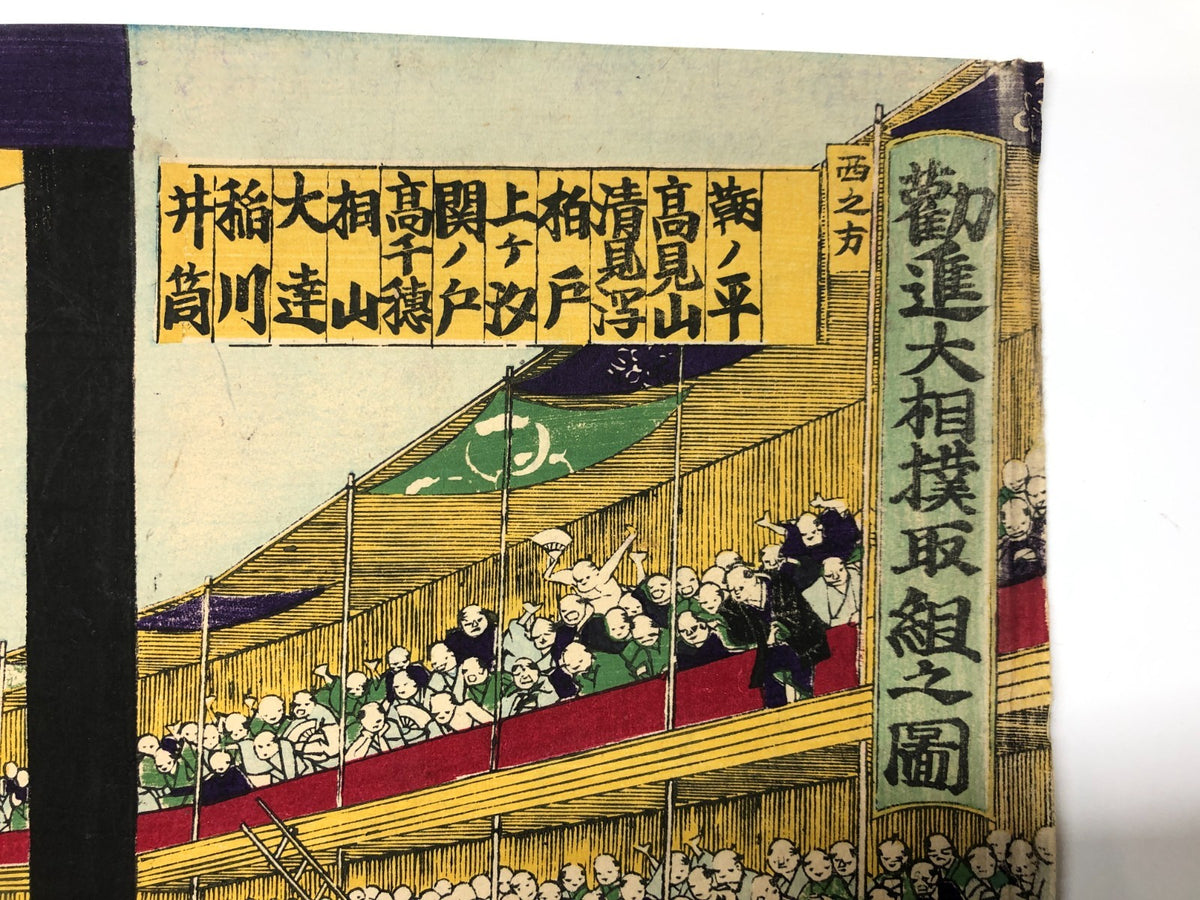 勸進大相撲取組之圖
西之方
鞆ノ平
高見山
清見浮
柏戸
上ケ汐
関ノ戸
高千穂
相山
大達
稲川
井筒